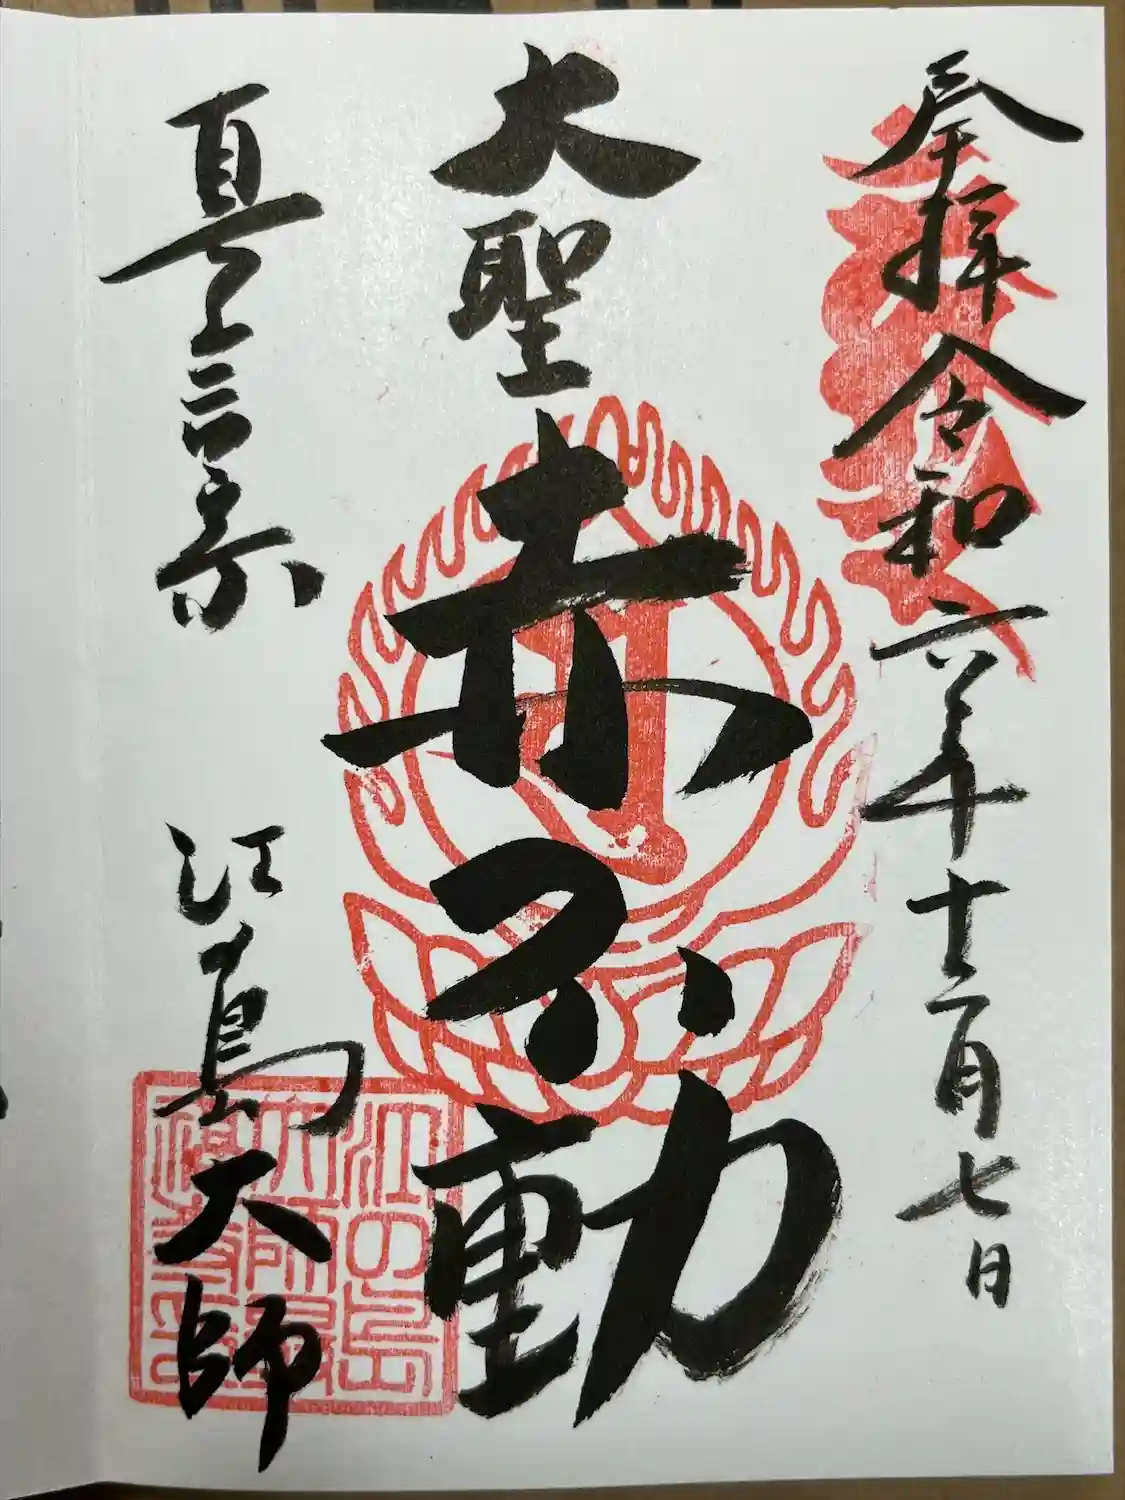 奉拝 令和六年十二月七日
大聖 赤不動
真言宗 江島大師
江の島大師